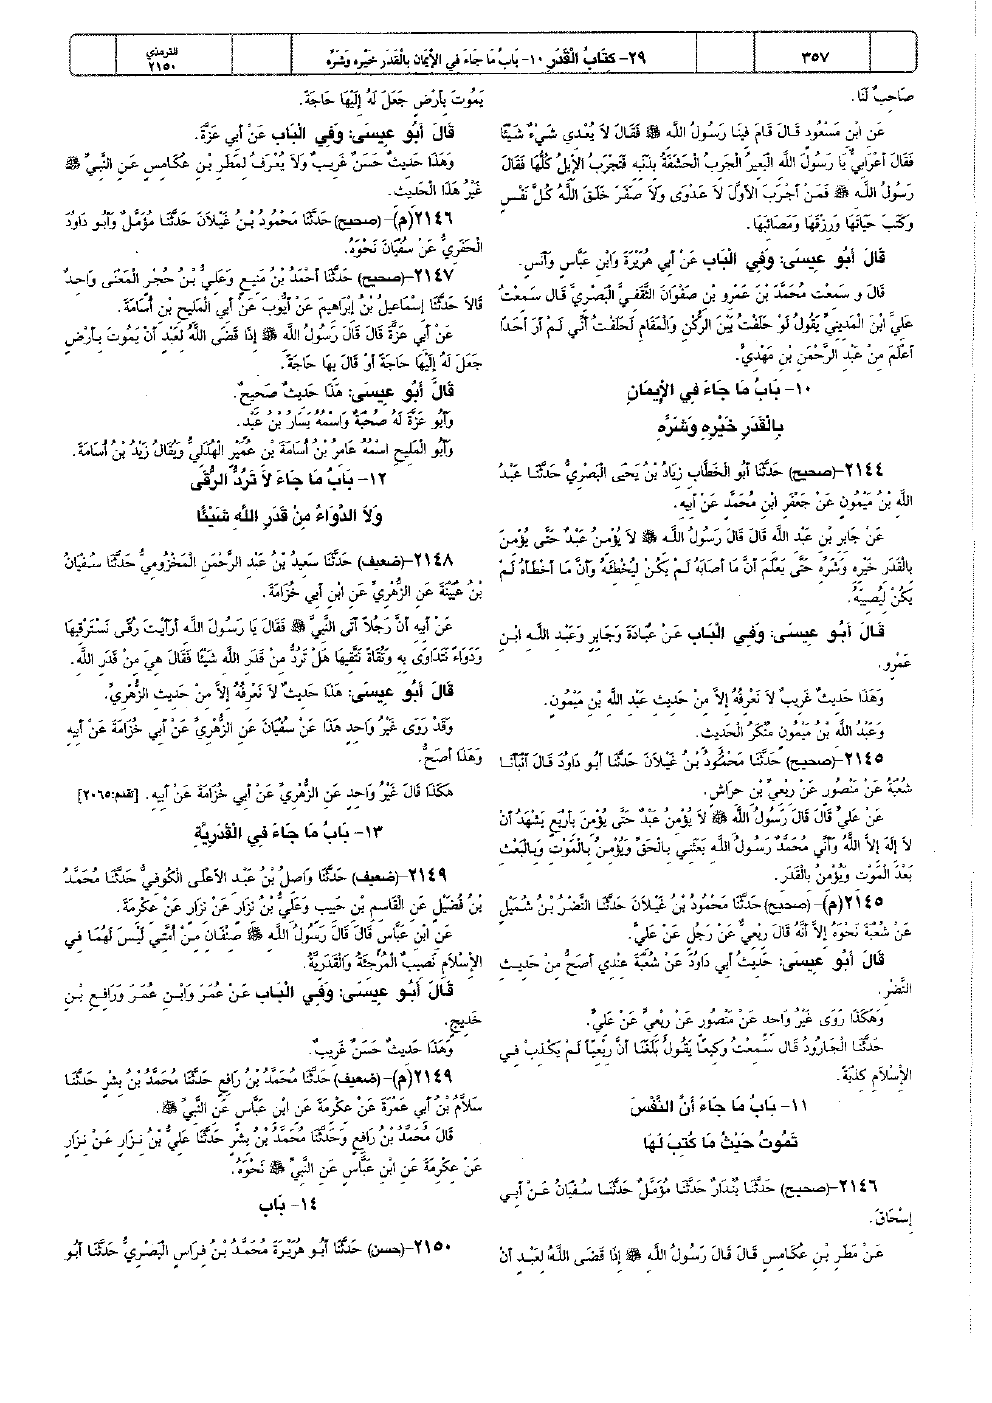 ٣٥٧
٢٩- كتَابُ الْقَدَر ١٠- بَابُ مَا جَاءَ في الإيمَان بالْقَدَر خَيْره وَشَرِّه
للترمذي
٢١٥٠
صَاحِبٌ لَنَا.
عَن ابْن مَسْعُود قَالَ قَامَ فينَا رَسُولُ اللَّه ﷺ فَقَالَ لاَ يُعْدي شَيْءٌ شَيْئًا
فَقَالَ أعْرَابيٌّ يَا رَسُولَ اللَّه الْبَعيرُ الْجَربُ الْحَشَفَةُ بذَنَبه فَتَجْرَبُ الإبلُ كُلُّهَا فَقَالَ
رَسُولُ اللَّه ﷺ فَمَنْ أجْرَبَ الأوَّلَ لاَ عَدْوَى وَلاَ صَفَرَ خَلَقَ اللَّهُ كُلَّ نَفْسٍ
وَكَتَبَ حَيَاتَهَا وَرزْقَهَا وَمَصَائبَهَا.
قَالَ أبُو عيسَى: وَفي الْبَاب عَنْ أبي هُرَيْرَةَ وَابْن عَبَّاسٍ وَأنَسٍ.
قَالَ و سَمعْت مُحَمَّدَ بْنَ عَمْرو بْن صَفْوَانَ الثَّقَفيَّ الْبَصْريَّ قَال سَمعْتُ
عَليَّ ابْنَ الْمَدينيِّ يَقُولُ لَوْ حَلَفْتُ بَيْنَ الرُّكْن وَالْمَقَام لَحَلَفْتُ أنِّي لَمْ أرَ أحَدًا
أعْلَمَ منْ عَبْد الرَّحْمَن بْن مَهْديٍّ.
١٠- بَابُ مَا جَاءَ في الإيمَان
بالْقَدَر خَيْره وَشَرِّه
٢١٤٤-(صحيح) حَدَّثَنَا أبُو الْخَطَّاب زيَادُ بْنُ يَحْيَى الْبَصْريُّ حَدَّثَنَا عَبْدُ
اللَّه بْنُ مَيْمُون عَنْ جَعْفَر ابْن مُحَمَّد عَنْ أبيه.
عَنْ جَابر بْن عَبْد اللَّه قَالَ قَالَ رَسُولُ اللَّه ﷺ لاَ يُؤْمنُ عَبْدٌ حَتَّى يُؤْمنَ
بالْقَدَر خَيْره وَشَرِّه حَتَّى يَعْلَمَ أنَّ مَا أصَابَهُ لَمْ يَكُنْ ليُخْطئَهُ وَأنَّ مَا أخْطَأهُ لَمْ
يَكُنْ ليُصيبَهُ.
قَالَ أبُو عيسَى: وَفي الْبَاب عَنْ عُبَادَةَ وَجَابر وَعَبْد اللَّه ابْن
عَمْرو.
وَهَذَا حَديثٌ غَريبٌ لاَ نَعْرفُهُ إلاَّ منْ حَديث عَبْد اللَّه بْن مَيْمُون.
وَعَبْدُ اللَّه بْنُ مَيْمُون مُنْكَرُ الْحَديث.
٢١٤٥-(صحيح) حَدَّثَنَا مَحْمُودُ بْنُ غَيْلاَنَ حَدَّثَنَا أبُو دَاوُدَ قَالَ أنْبَأنَا
شُعْبَةُ عَنْ مَنْصُور عَنْ ربْعيِّ بْن حرَاشٍ.
عَنْ عَليٍّ قَالَ قَالَ رَسُولُ اللَّه ﷺ لاَ يُؤْمنُ عَبْدٌ حَتَّى يُؤْمنَ بأرْبَع يَشْهَدُ أنْ
لاَ إلَهَ إلاَّ اللَّهُ وَأنِّي مُحَمَّدٌ رَسُولُ اللَّه بَعَثَني بالْحَقِّ وَيُؤْمنُ بالْمَوْت وَبالْبَعْث
بَعْدَ الْمَوْت وَيُؤْمنُ بالْقَدَر.
٢١٤٥(م)-(صحيح) حَدَّثَنَا مَحْمُودُ بْنُ غَيْلاَنَ حَدَّثَنَا النَّضْرُ بْنُ شُمَيْل
عَنْ شُعْبَةَ نَحْوَهُ إلاَّ أنَّهُ قَالَ ربْعيٌّ عَنْ رَجُل عَنْ عَليٍّ.
قَالَ أبُو عيسَى: حَديثُ أبي دَاوُدَ عَنْ شُعْبَةَ عنْدي أصَحُّ منْ حَديث
النَّضْر.
وَهَكَذَا رَوَى غَيْرُ وَاحد عَنْ مَنْصُور عَنْ ربْعيٍّ عَنْ عَليٍّ.
حَدَّثَنَا الْجَارُودُ قَال سَمعْتُ وَكيعًا يَقُولُ بَلَغَنَا أنَّ ربْعيًّا لَمْ يَكْذبْ في
الإسْلاَم كَذْبَةً.
١١- بَابُ مَا جَاءَ أنَّ النَّفْسَ
تَمُوتُ حَيْثُ مَا كُتبَ لَهَا
٢١٤٦-(صحيح) حَدَّثَنَا بُنْدَارٌ حَدَّثَنَا مُؤَمَّلٌ حَدَّثَنَا سُفْيَانُ عَنْ أبي
إسْحَاقَ.
عَنْ مَطَر بْن عُكَامسٍ قَالَ قَالَ رَسُولُ اللَّه ﷺ إذَا قَضَى اللَّهُ لعَبْد أنْ
يَمُوتَ بأرْضٍ جَعَلَ لَهُ إلَيْهَا حَاجَةً.
قَالَ أبُو عيسَى: وَفي الْبَاب عَنْ أبي عَزَّةَ.
وَهَذَا حَديثٌ حَسَنٌ غَريبٌ وَلاَ يُعْرَفُ لمَطَر بْن عُكَامس عَن النَّبيِّ ﷺ
غَيْرُ هَذَا الْحَديث.
٢١٤٦(م)-(صحيح) حَدَّثَنَا مَحْمُودُ بْنُ غَيْلاَنَ حَدَّثَنَا مُؤَمَّلٌ وَأبُو دَاوُدَ
الْحَفَريُّ عَنْ سُفْيَانَ نَحْوَهُ.
٢١٤٧-(صحيح) حَدَّثَنَا أحْمَدُ بْنُ مَنيع وَعَليُّ بْنُ حُجْر الْمَعْنَى وَاحدٌ
قَالاَ حَدَّثَنَا إسْمَاعيلُ بْنُ إبْرَاهيمَ عَنْ أيُّوبَ عَنْ أبي الْمَليح بْن أُسَامَةَ.
عَنْ أبي عَزَّةَ قَالَ قَالَ رَسُولُ اللَّه ﷺ إذَا قَضَى اللَّهُ لعَبْد أنْ يَمُوتَ بأرْضٍ
جَعَلَ لَهُ إلَيْهَا حَاجَةً أوْ قَالَ بهَا حَاجَةً.
قَالَ أبُو عيسَى: هَذَا حَديثٌ صَحيحٌ.
وَأبُو عَزَّةَ لَهُ صُحْبَةٌ وَاسْمُهُ يَسَارُ بْنُ عَبْد.
وَأبُو الْمَليح اسْمُهُ عَامرُ بْنُ أُسَامَةَ بْن عُمَيْر الْهُذَليُّ وَيُقَالُ زَيْدُ بْنُ أُسَامَةَ.
١٢- بَابُ مَا جَاءَ لاَ تَرُدُّ الرُّقَى
وَلاَ الدَّوَاءُ منْ قَدَر اللَّه شَيْئًا
٢١٤٨-(ضعيف) حَدَّثَنَا سَعيدُ بْنُ عَبْد الرَّحْمَن الْمَخْزُوميُّ حَدَّثَنَا سُفْيَانُ
بْنُ عُيَيْنَةَ عَن الزُّهْريِّ عَن ابْن أبي خُزَامَةَ.
عَنْ أبيه أنَّ رَجُلاً أتَى النَّبيَّ ﷺ فَقَالَ يَا رَسُولَ اللَّه أرَأيْتَ رُقًى نَسْتَرْقيهَا
وَدَوَاءً نَتَدَاوَى به وَتُقَاةً نَتَّقيهَا هَلْ تَرُدُّ منْ قَدَر اللَّه شَيْئًا فَقَالَ هيَ منْ قَدَر اللَّه.
قَالَ أبُو عيسَى: هَذَا حَديثٌ لاَ نَعْرفُهُ إلاَّ منْ حَديث الزُّهْريِّ.
وَقَدْ رَوَى غَيْرُ وَاحد هَذَا عَنْ سُفْيَانَ عَن الزُّهْريِّ عَنْ أبي خُزَامَةَ عَنْ أبيه
وَهَذَا أصَحُّ.
هَكَذَا قَالَ غَيْرُ وَاحد عَن الزُّهْريِّ عَنْ أبي خُزَامَةَ عَنْ أبيه. [تقدم:٢٠٦٥]
١٣- بَابُ مَا جَاءَ في الْقَدَريَّة
٢١٤٩-(ضعيف) حَدَّثَنَا وَاصلُ بْنُ عَبْد الأعْلَى الْكُوفيُّ حَدَّثَنَا مُحَمَّدُ
بْنُ فُضَيْل عَن الْقَاسم بْن حَبيب وَعَليُّ بْنُ نزَار عَنْ نزَار عَنْ عكْرمَةَ.
عَن ابْن عَبَّاس قَالَ قَالَ رَسُولُ اللَّه ﷺ صنْفَان منْ أُمَّتي لَيْسَ لَهُمَا في
الإسْلاَم نَصيبٌ الْمُرْجئَةُ وَالْقَدَريَّةُ.
قَالَ أبُو عيسَى: وَفي الْبَاب عَنْ عُمَرَ وَابْن عُمَرَ وَرَافع بْن
خَديج.
وَهَذَا حَديثٌ حَسَنٌ غَريبٌ.
٢١٤٩(م)-(ضعيف) حَدَّثَنَا مُحَمَّدُ بْنُ رَافع حَدَّثَنَا مُحَمَّدُ بْنُ بشْر حَدَّثَنَا
سَلاَّمُ بْنُ أبي عَمْرَةَ عَنْ عكْرمَةَ عَن ابْن عَبَّاسٍ عَن النَّبيِّ ﷺ.
قَالَ مُحَمَّدُ بْنُ رَافع وَحَدَّثَنَا مُحَمَّدُ بْنُ بشْر حَدَّثَنَا عَليُّ بْنُ نزَار عَنْ نزَار
عَنْ عكْرمَةَ عَن ابْن عَبَّاسٍ عَن النَّبيِّ ﷺ نَحْوَهُ.
١٤- بَاب
٢١٥٠-(حسن) حَدَّثَنَا أبُو هُرَيْرَةَ مُحَمَّدُ بْنُ فرَاس الْبَصْريُّ حَدَّثَنَا أبُو